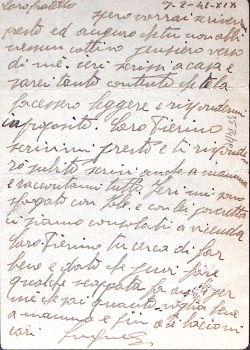 Caro fratello
7-2-41-XIX
spero vorrai scrivermi
presto ed auguro che tu non abbi
nessun cattivo pensiero verso
di me. ieri scrissi a casa e
sarei tanto contento che te la
facessero leggere e rispondermi
in proposito. Caro Pierino
scrivimi presto e ti rispondero
subito scrivi anche a mamma
e raccontami tutto ieri mi sono
sfogato con te e con lei
ci siamo consolati a vicenda
Caro Pierino tu cerca di far
bene e dato che puoi fare
qualche scappata fa per
me che sai quanto voglia bene
a mamma e fin a te bacioni
cari